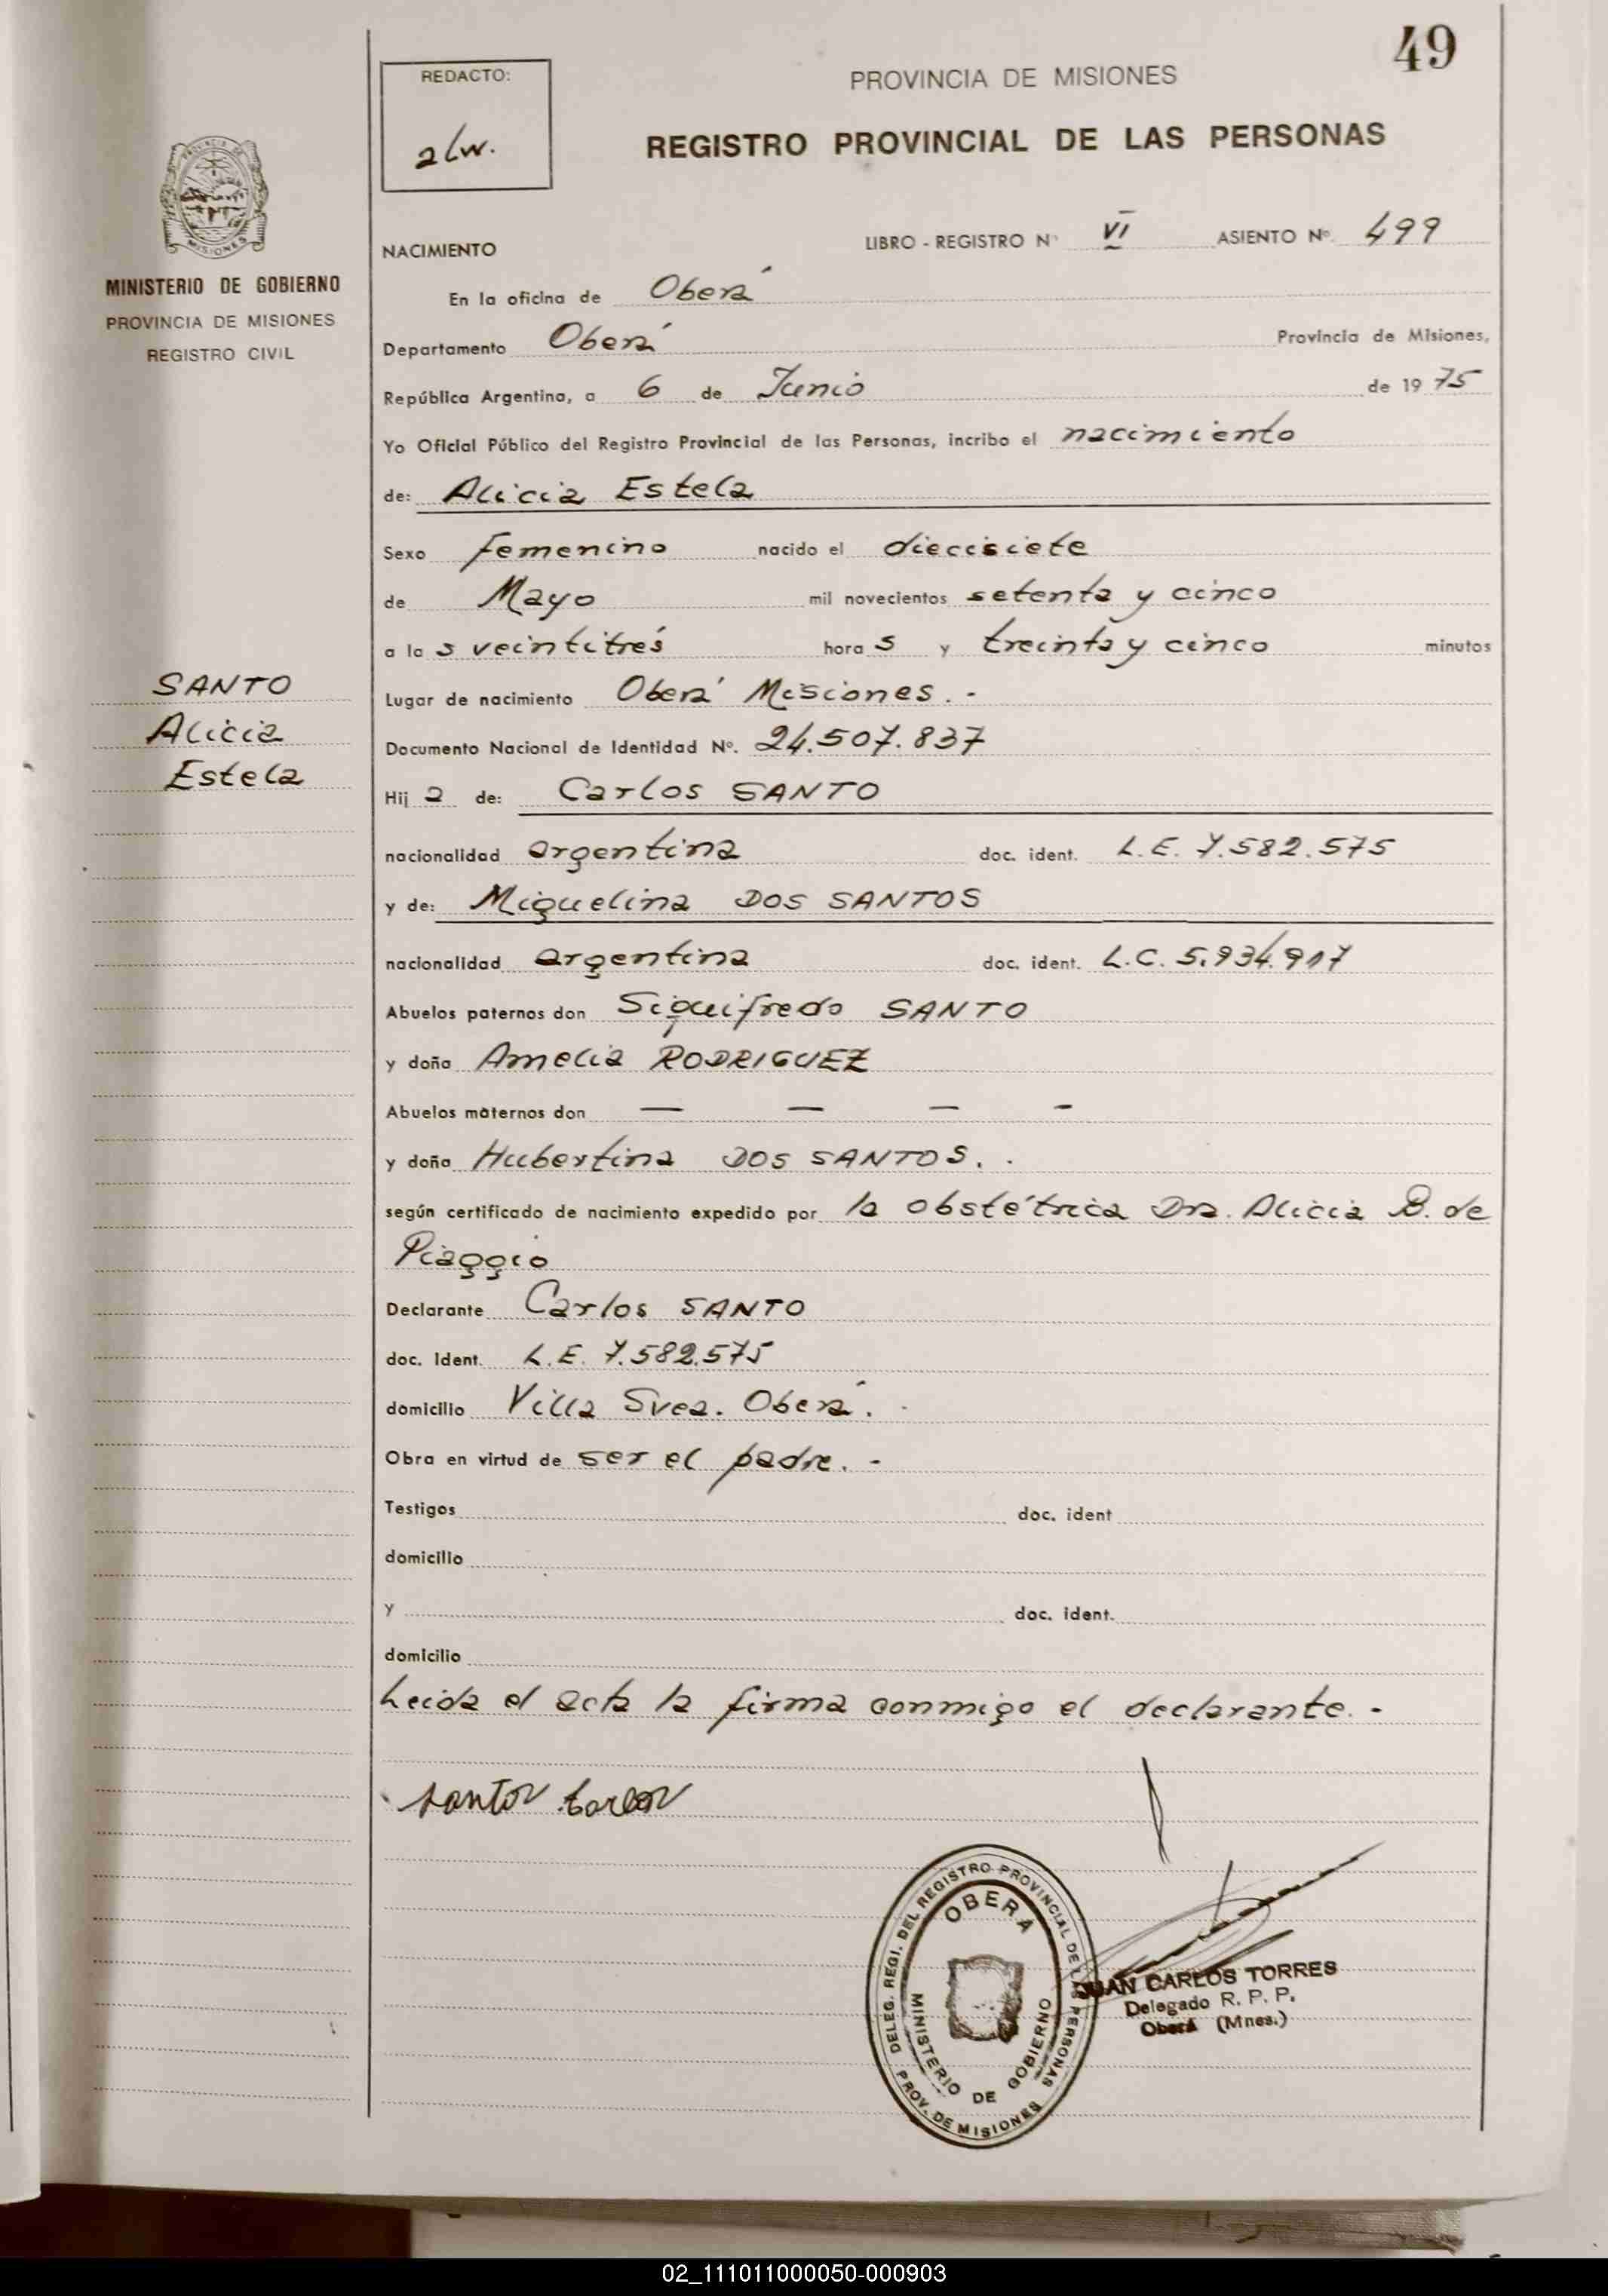 49
REDACTO:
alw.
PROVINCIA DE MISIONES
REGISTRO PROVINCIAL DE LAS PERSONAS
MISIONES
MINISTERIO DE GOBIERNO
PROVINCIA DE MISIONES
REGISTRO CIVIL
NACIMIENTO LIBRO - REGISTRO Nº VI ASIENTO Nº. 499
En la oficina de Oberá
Departamento Oberá Provincia de Misiones,
República Argentina, a 6 de Junio de 1975
Yo Oficial Público del Registro Provincial de las Personas, incribo el nacimiento
de: Alicia Estela
Sexo femenino nacido el diecisiete
de Mayo mil novecientos setenta y cinco
a las veintitrés horas y treinta y cinco minutos
SANTO
Alicia
Estela
Lugar de nacimiento Oberá Misiones. -
Documento Nacional de Identidad Nº. 24.507.837
Hija de: Carlos SANTO
nacionalidad argentina doc. ident. L.E. 7.582.575
y de: Miguelina DOS SANTOS
nacionalidad argentina doc. ident. L.C. 5.934.917
Abuelos paternos don Siguifredo SANTO
y doña Amelia RODRIGUEZ
Abuelos maternos don — — — -
y doña Hubertina DOS SANTOS. .
según certificado de nacimiento expedido por la obstétrica Dra. Alicia B. de
Piaggio
Declarante Carlos SANTO
doc. Ident. L.E. 7.582.575
domicilio Villa Svea. Oberá. -
Obra en virtud de ser el padre. -
Testigos doc. ident
domicilio
y doc. ident.
domicilio
Leida el acta la firma conmigo el declarante. -
Santos Carlos
DELEG. REGI. DEL REGISTRO PROVINCIAL DE LAS PERSONAS
OBERA
MINISTERIO DE GOBIERNO
PROV. DE MISIONES
JUAN CARLOS TORRES
Delegado R. P. P.
Oberá (Mnes.)
02_111011000050-000903